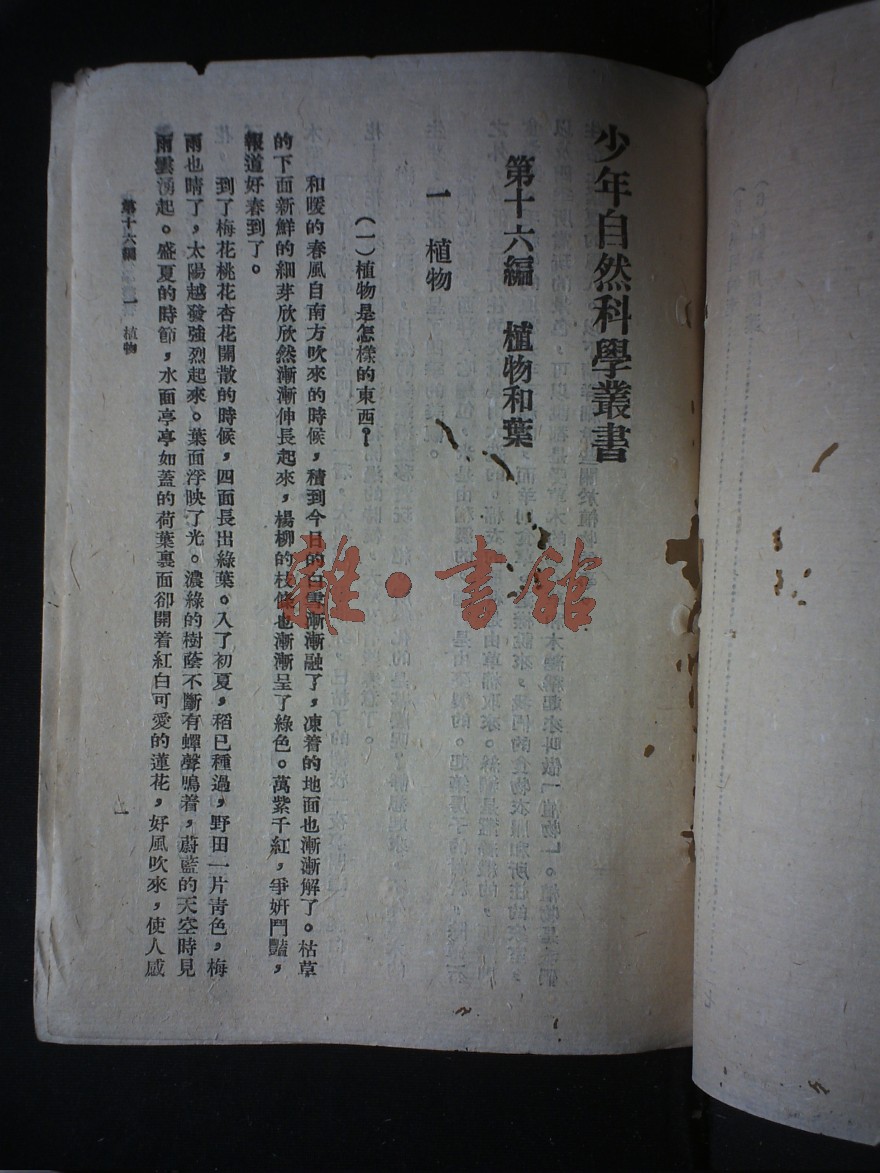 少年自然科學叢書
第十六編　植物和葉
一　植物
（一）植物是怎樣的東西？
和暖的春風自南方吹來的時候，積到今日的白雪漸漸融了，凍着的地面也漸漸解了。枯草
的下面新鮮的細芽欣欣然漸漸伸長起來，楊柳的枝條也漸漸呈了綠色。萬紫千紅，爭姸鬥豔，
報道好春到了。
到了梅花桃花杏花開散的時候，四面長出綠葉。入了初夏，稻已種過，野田一片靑色，梅
雨也晴了，太陽越發強烈起來。葉面浮映了光。濃綠的樹蔭不斷有蟬聲鳴着，蔚藍的天空時見
雨雲湧起。盛夏的時節，水面亭亭如蓋的荷葉裏面卻開着紅白可愛的蓮花，好風吹來，使人感
第十六編　一　植物
一
雜·書館